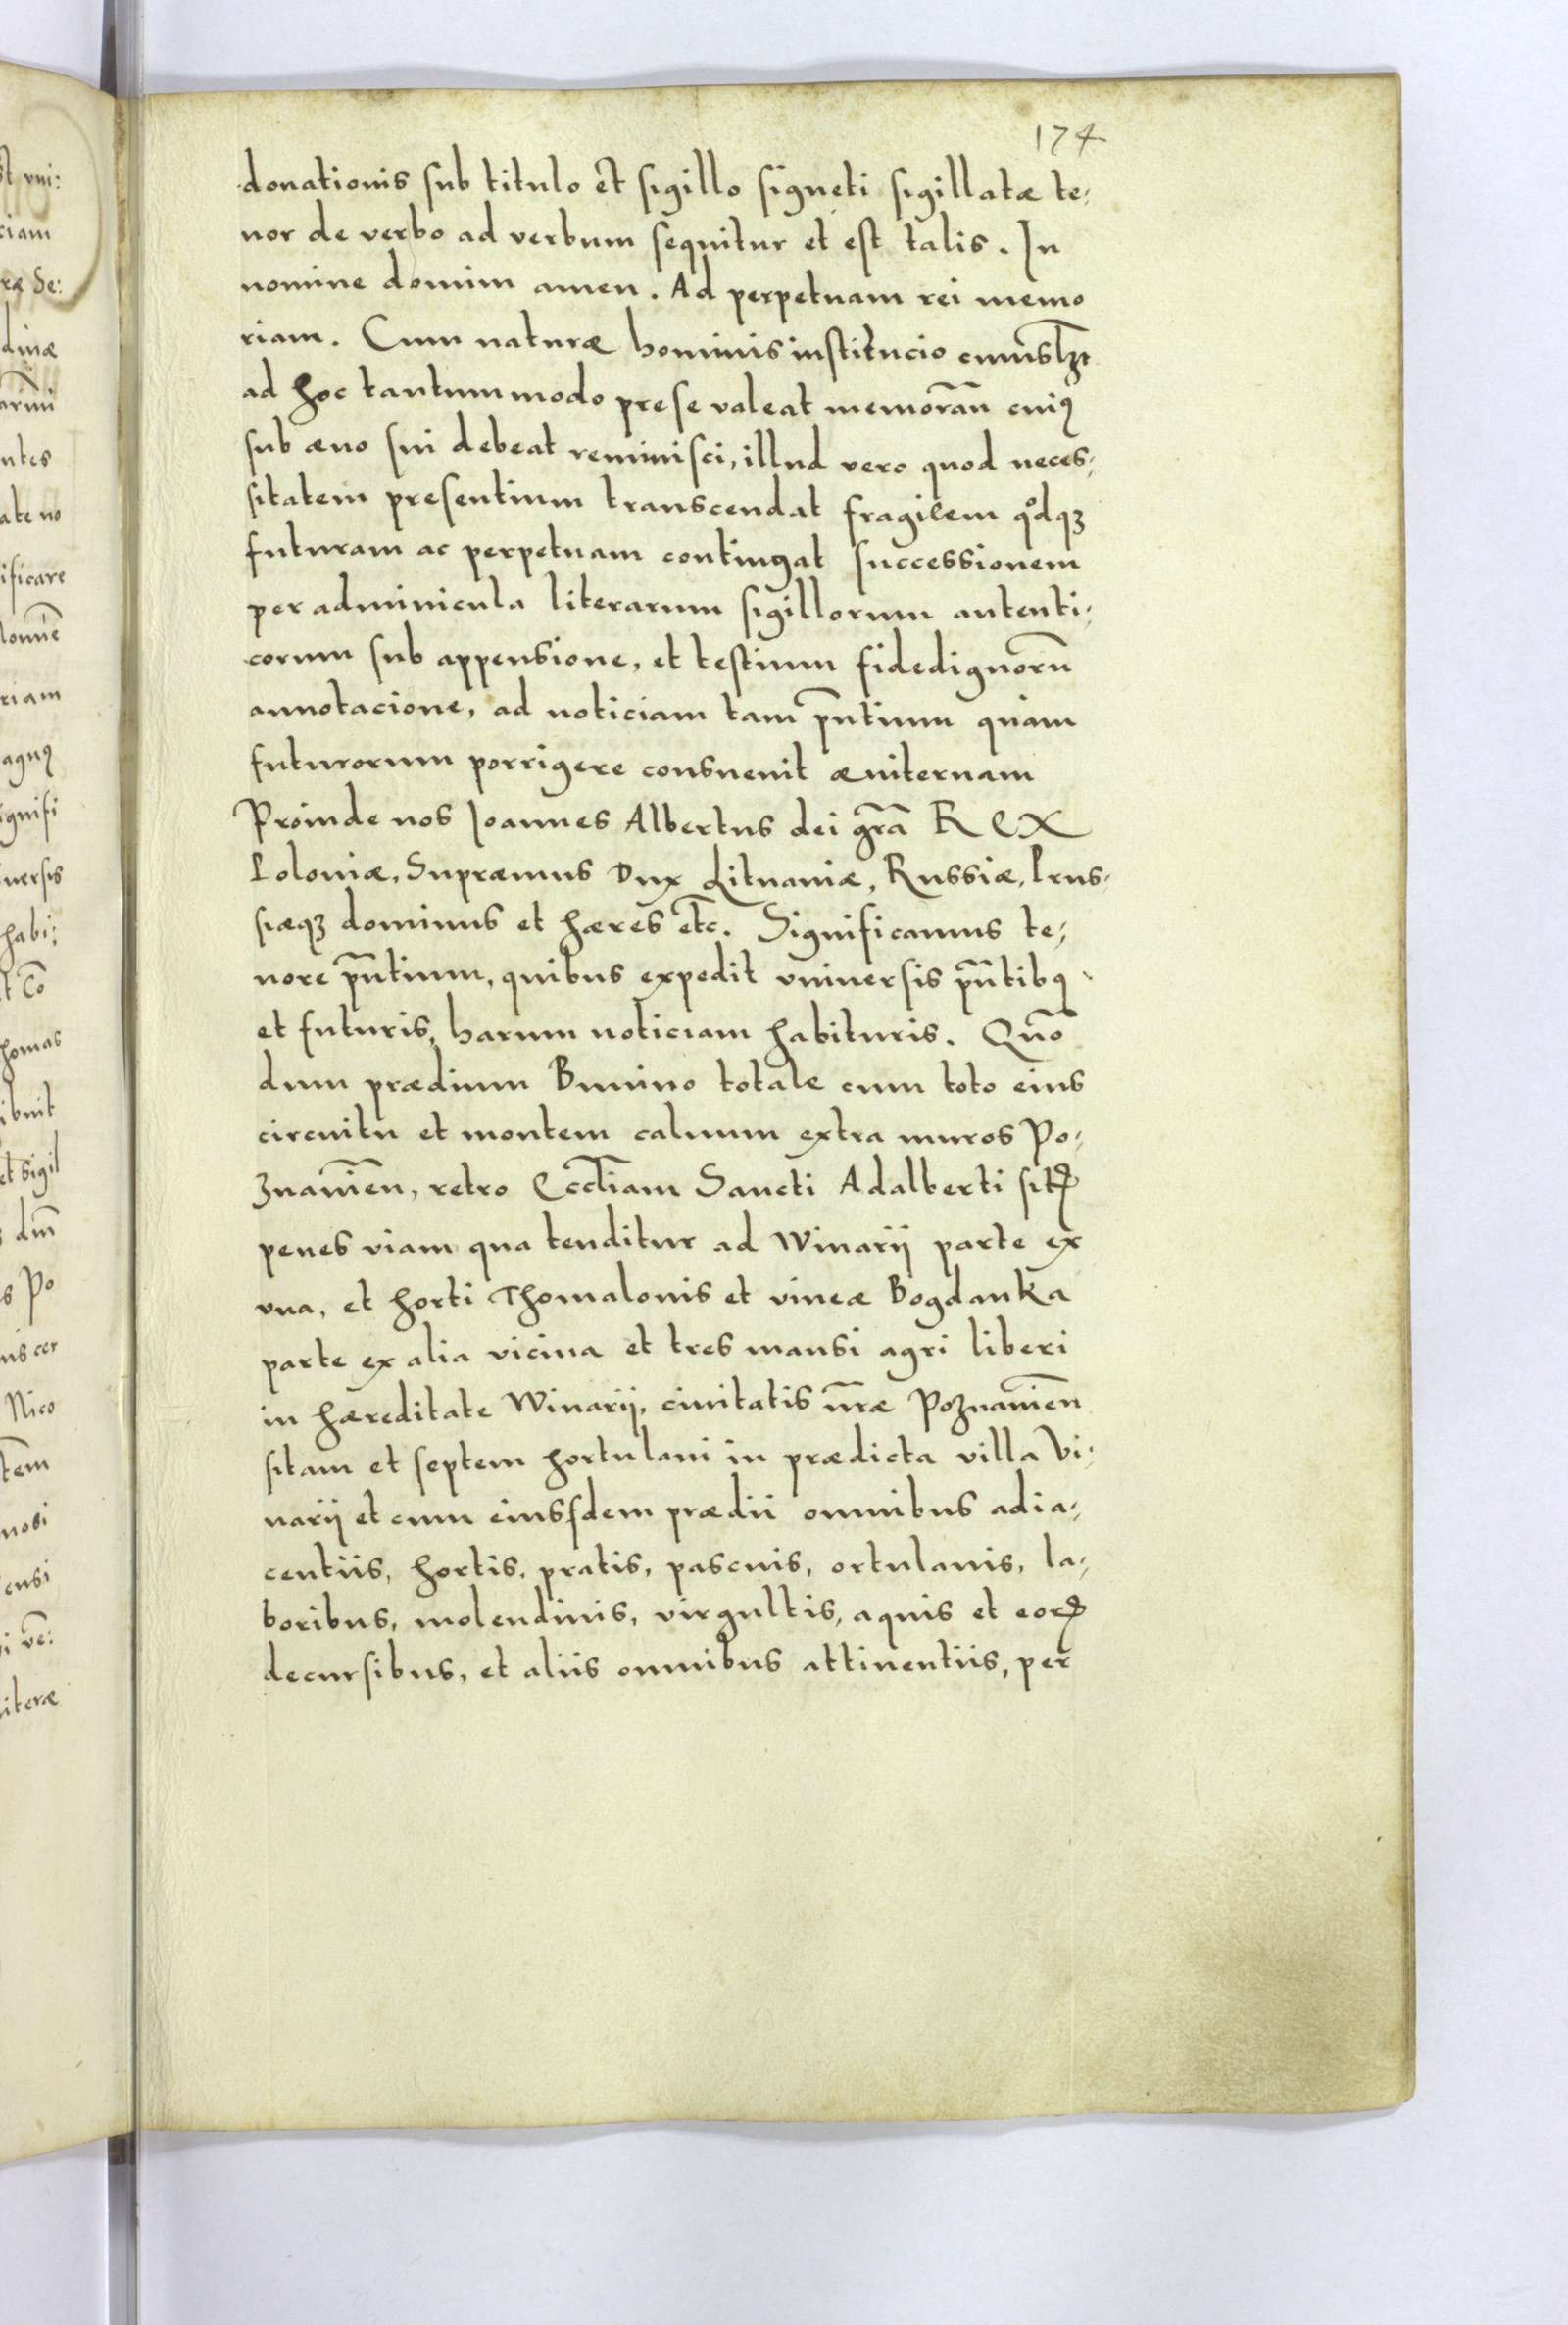 174
donationis sub titulo et sigillo signeti sigillatæ te⸗
nor de verbo ad verbum sequitur et est talis. In
nomine domini amen. Ad perpetuam rei memo
riam. Cum naturæ hominis institucio cuiuslꝫt
ad hoc tantummodo prese valeat memorañ cuiꝰ
sub æuo sui debeat reminisci, illud vero quod neces⸗
sitatem presentium transcendat fragilem qͦdqꝫ
futuram ac perpetuam contingat successionem
per adminicula literarum sigillorum autenti⸗
corum sub appensione, et testium fidedignorũ
annotacione, ad noticiam tam pñtium quam
futurorum porrigere consueuit æuiternam
Proinde nos Joannes Albertus dei gr̃a REX
Poloniæ, Supræmus Dux Lituaniæ, Russiæ, Prus⸗
siæqꝫ dominus et hæres etc̃. Significamus te⸗
nore pñtium, quibus expedit vniuersis pñtibꝰ
et futuris, harum noticiam habituris. Quõ
dum prædium Bunino totale cum toto eius
circuitu et montem caluum extra muros Po⸗
znanieñ, retro Eccl̃iam Sancti Adalberti sitꝝ
penes viam qua tenditur ad Winarij parte ex
vna, et horti Thomalonis et vineæ Bogdanka
parte ex alia vicina et tres mansi agri liberi
in hæreditate Winarij, ciuitatis nr̃æ Poznanieñ
sitam et septem hortulani in prædicta villa Vi⸗
narij et cum eiusfdem prædii omnibus adia⸗
centiis, hortis, pratis, pascuis, ortulanis, la⸗
boribus, molendinis, virgultis, aquis et eorꝝ
decursibus, et aliis omnibus attinentiis, per